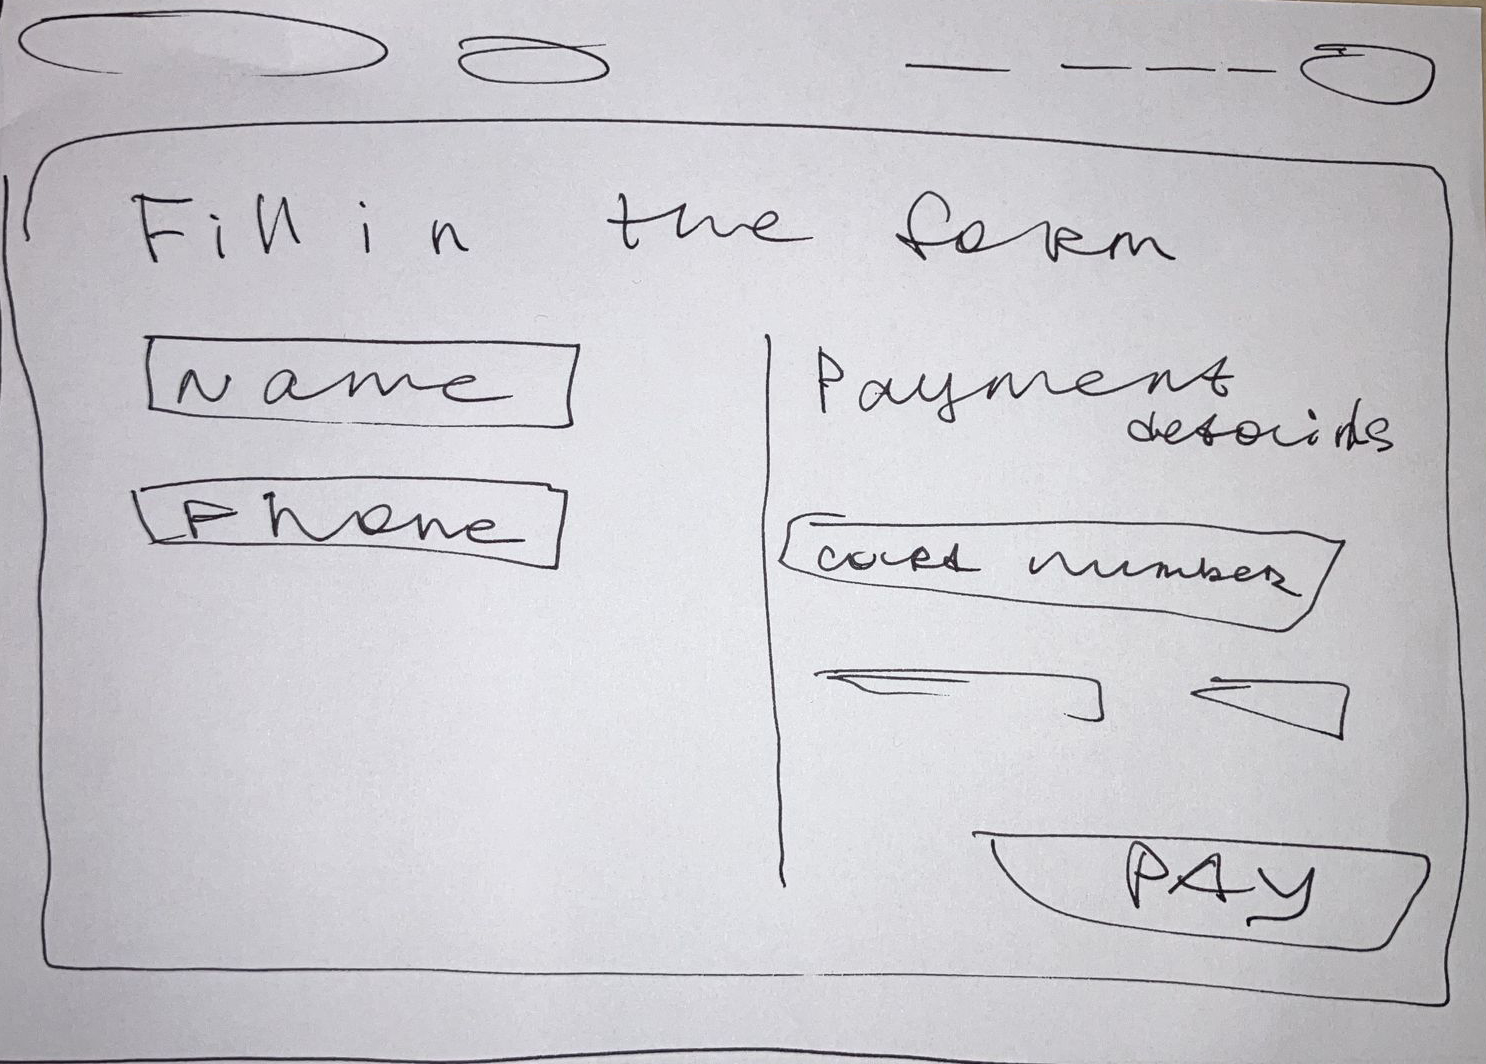 Fill in the form
Name
Phone
Payment
details
card number
PAY